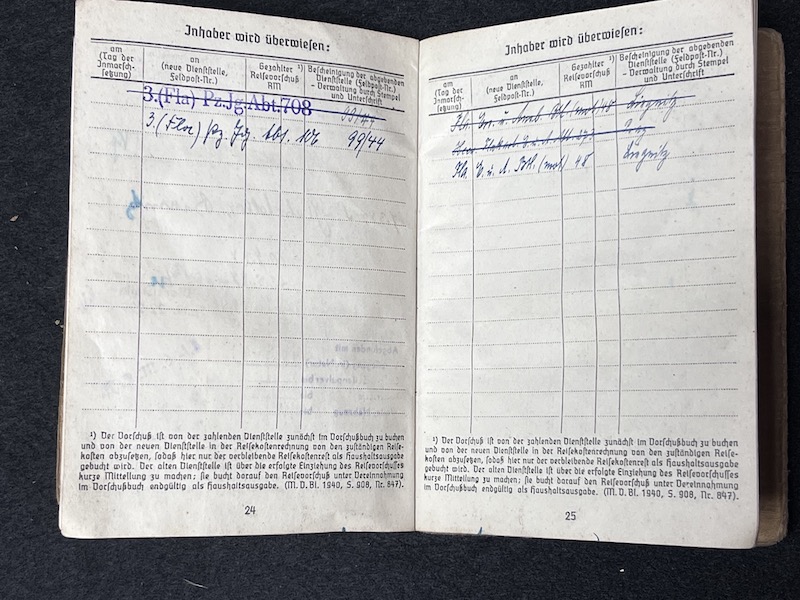 Inhaber wird überwiesen:
am
(Tag der
Inmarsch-
setzung)
an
(neue Dienststelle,
Feldpost-Nr.)
Gezahlter ¹)
Reisevorschuß
RM
Bescheinigung der abgebenden
Dienststelle (Feldpost-Nr.)
- Verwaltung durch Stempel
und Unterschrift
3.(Fla) Pz.Jg.Abt.708 99/44
3. (Fla) Pz. Jg. Abt. 106 99/44
¹) Der Vorschuß ist von der zahlenden Dienststelle zunächst im Vorschußbuch zu buchen
und von der neuen Dienststelle in der Reisekostenrechnung von den zuständigen Reise-
kosten abzusetzen, sodaß hier nur der verbleibende Reisekostenrest als Haushaltsausgabe
gebucht wird. Der alten Dienststelle ist über die erfolgte Einziehung des Reisevorschusses
kurze Mitteilung zu machen; sie bucht darauf den Reisevorschuß unter Vereinnahmung
im Vorschußbuch endgültig als Haushaltsausgabe. (M. V. Bl. 1940, S. 908, Nr. 847).
24
Inhaber wird überwiesen:
am
(Tag der
Inmarsch-
setzung)
an
(neue Dienststelle,
Feldpost-Nr.)
Gezahlter ¹)
Reisevorschuß
RM
Bescheinigung der abgebenden
Dienststelle (Feldpost-Nr.)
- Verwaltung durch Stempel
und Unterschrift
(mot) 48 Liegnitz
Fla. E. u. A. Btl. (mot) 48 Liegnitz
¹) Der Vorschuß ist von der zahlenden Dienststelle zunächst im Vorschußbuch zu buchen
und von der neuen Dienststelle in der Reisekostenrechnung von den zuständigen Reise-
kosten abzusetzen, sodaß hier nur der verbleibende Reisekostenrest als Haushaltsausgabe
gebucht wird. Der alten Dienststelle ist über die erfolgte Einziehung des Reisevorschusses
kurze Mitteilung zu machen; sie bucht darauf den Reisevorschuß unter Vereinnahmung
im Vorschußbuch endgültig als Haushaltsausgabe. (M. V. Bl. 1940, S. 908, Nr. 847).
25